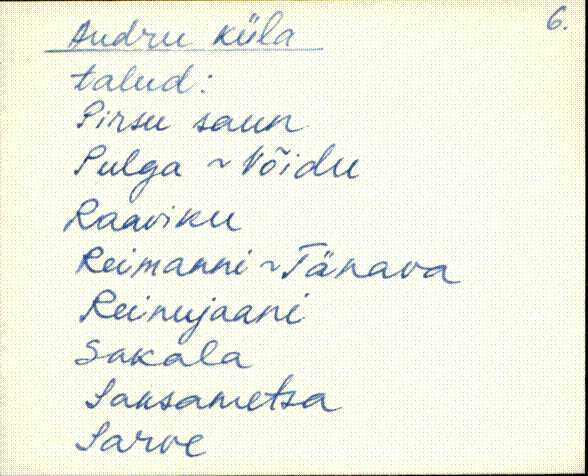 Andru küla 6.
talud:
Pirsu saun
Pulga ~ Võidu
Raaviku
Reimanni ~ Tänava
Reinujaani
Sakala
Saksametsa
Sarve